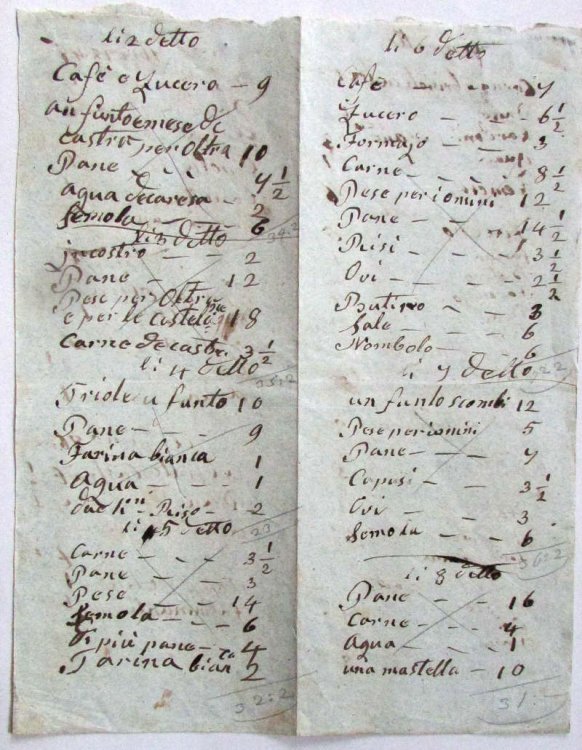 li 2 detto
Cafè e Zucero - 9
un funto e mese de
castra per Oltra 10
Pane - - - 4 1/2
aqua de caresa 2
Semola - 6
34:2
li 3 detto
incostro - - - 2
Pane - - 12
Pese per Oltra
e per le 18
Carne de castra 3 1/2
35:2
li 4 detto
Triole u funto 10
Pane - - - 9
Farina bianca 1
Aqua - - - 1
due lin Riso - - 2
23
li 5 detto
Carne - - - 3 1/2
Pane - - - 3
Pese - - - 14
Semola - - 6
Di più pane - 4
Farina bianca 2
32:2
li 6 detto
Cafè 7
Zucero - - 6 1/2
Formajo - - 3
Carne - - - 8 1/2
Pese per i omini 12
Pane - - - 14 1/2
Risi - - - 3 1/2
Ovi - - - 2 1/2
Butiro - - 3
Sale - - - 6
Nombolo - - 6
li 7 detto
un funto scombi 12
Pese per i omini 5
Pane - - - 7
Capusi - - 3 1/2
Ovi - - - 3
Semola - - 6
36:2
li 8 detto
Pane - - - 16
Carne - - - 4
Aqua - - - 1
una mastella - 10
31 -